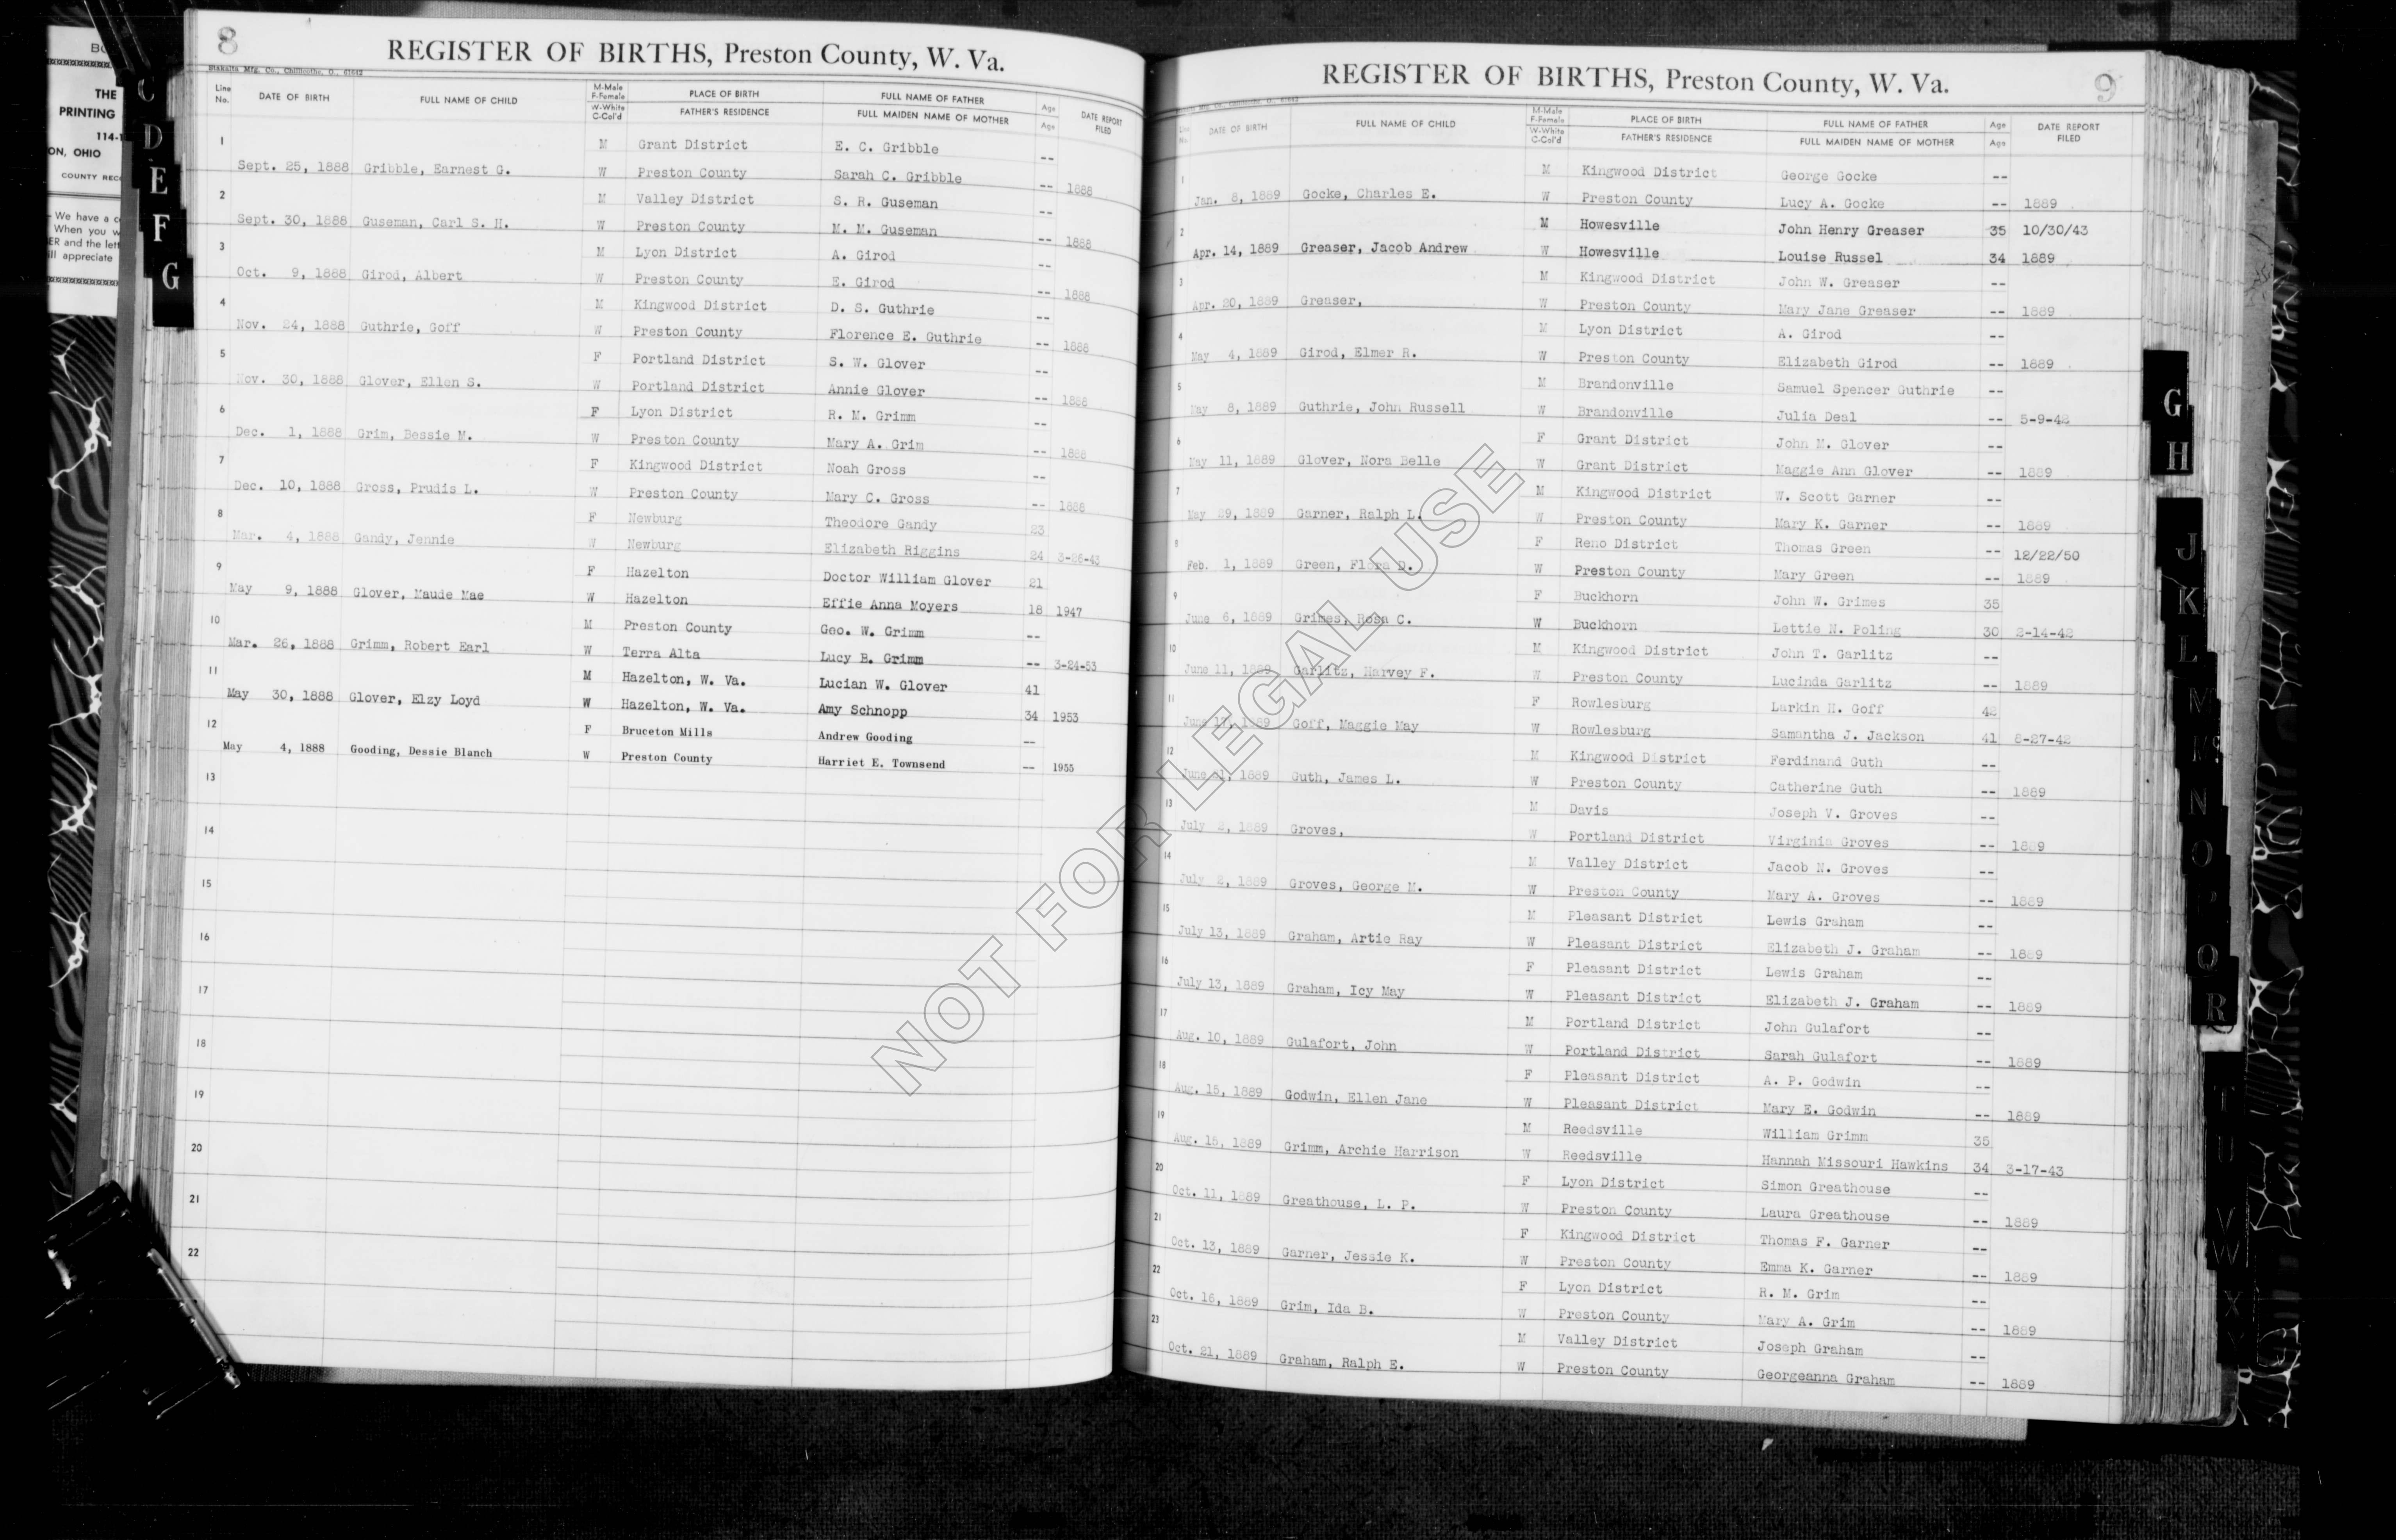 8
REGISTER OF BIRTHS, Preston County, W. Va.
Line No. DATE OF BIRTH FULL NAME OF CHILD M-Male F-Female PLACE OF BIRTH FULL NAME OF FATHER Age DATE REPORT FILED
W-White C-Col'd FATHER'S RESIDENCE FULL MAIDEN NAME OF MOTHER Age
1 M Grant District E. C. Gribble --
Sept. 25, 1888 Gribble, Earnest G. W Preston County Sarah C. Gribble -- 1888
2 M Valley District S. R. Guseman --
Sept. 30, 1888 Guseman, Carl S. H. W Preston County M. M. Guseman -- 1888
3 M Lyon District A. Girod --
Oct. 9, 1888 Girod, Albert W Preston County E. Girod -- 1888
4 M Kingwood District D. S. Guthrie --
Nov. 24, 1888 Guthrie, Goff W Preston County Florence E. Guthrie -- 1888
5 F Portland District S. W. Glover --
Nov. 30, 1888 Glover, Ellen S. W Portland District Annie Glover -- 1888
6 F Lyon District R. M. Grimm --
Dec. 1, 1888 Grim, Bessie M. W Preston County Mary A. Grim -- 1888
7 F Kingwood District Noah Gross --
Dec. 10, 1888 Gross, Prudis L. W Preston County Mary C. Gross -- 1888
8 F Newburg Theodore Gandy 23
Mar. 4, 1888 Gandy, Jennie W Newburg Elizabeth Riggins 24 3-26-43
9 F Hazelton Doctor William Glover 21
May 9, 1888 Glover, Maude Mae W Hazelton Effie Anna Moyers 18 1947
10 M Preston County Geo. W. Grimm --
Mar. 26, 1888 Grimm, Robert Earl W Terra Alta Lucy B. Grimm -- 3-24-53
11 M Hazelton, W. Va. Lucian W. Glover 41
May 30, 1888 Glover, Elzy Loyd W Hazelton, W. Va. Amy Schnopp 34 1953
12 F Bruceton Mills Andrew Gooding --
May 4, 1888 Gooding, Dessie Blanch W Preston County Harriet E. Townsend -- 1955
13
14
15
16
17
18
19
20
21
22
REGISTER OF BIRTHS, Preston County, W. Va.
9
Line No DATE OF BIRTH FULL NAME OF CHILD M-Male F-Female PLACE OF BIRTH FULL NAME OF FATHER Age DATE REPORT FILED
W-White C-Col'd FATHER'S RESIDENCE FULL MAIDEN NAME OF MOTHER Age
1 M Kingwood District George Gocke --
Jan. 8, 1889 Gocke, Charles E. W Preston County Lucy A. Gocke -- 1889
2 M Howesville John Henry Greaser 35 10/30/43
Apr. 14, 1889 Greaser, Jacob Andrew W Howesville Louise Russel 34 1889
3 M Kingwood District John W. Greaser --
Apr. 20, 1889 Greaser, W Preston County Mary Jane Greaser -- 1889
4 M Lyon District A. Girod --
May 4, 1889 Girod, Elmer R. W Preston County Elizabeth Girod -- 1889
5 M Brandonville Samuel Spencer Guthrie --
May 8, 1889 Guthrie, John Russell W Brandonville Julia Deal -- 5-9-42
6 F Grant District John M. Glover --
May 11, 1889 Glover, Nora Belle W Grant District Maggie Ann Glover -- 1889
7 M Kingwood District W. Scott Garner --
May 29, 1889 Garner, Ralph L. W Preston County Mary K. Garner -- 1889
8 F Reno District Thomas Green -- 12/22/50
Feb. 1, 1889 Green, Flora D. W Preston County Mary Green -- 1889
9 F Buckhorn John W. Grimes 35
June 6, 1889 Grimes, Rosa C. W Buckhorn Lettie N. Poling 30 2-14-42
10 M Kingwood District John T. Garlitz --
June 11, 1889 Garlitz, Harvey F. W Preston County Lucinda Garlitz -- 1889
11 F Rowlesburg Larkin H. Goff 42
June 17, 1889 Goff, Maggie May W Rowlesburg Samantha J. Jackson 41 8-27-42
12 M Kingwood District Ferdinand Guth --
June 21, 1889 Guth, James L. W Preston County Catherine Guth -- 1889
13 M Davis Joseph V. Groves --
July 2, 1889 Groves, W Portland District Virginia Groves -- 1889
14 M Valley District Jacob N. Groves --
July 2, 1889 Groves, George M. W Preston County Mary A. Groves -- 1889
15 M Pleasant District Lewis Graham --
July 13, 1889 Graham, Artie Ray W Pleasant District Elizabeth J. Graham -- 1889
16 F Pleasant District Lewis Graham --
July 13, 1889 Graham, Icy May W Pleasant District Elizabeth J. Graham -- 1889
17 M Portland District John Gulafort --
Aug. 10, 1889 Gulafort, John W Portland District Sarah Gulafort -- 1889
18 F Pleasant District A. P. Godwin --
Aug. 15, 1889 Godwin, Ellen Jane W Pleasant District Mary E. Godwin -- 1889
19 M Reedsville William Grimm 35
Aug. 15, 1889 Grimm, Archie Harrison W Reedsville Hannah Missouri Hawkins 34 3-17-43
20 F Lyon District Simon Greathouse --
Oct. 11, 1889 Greathouse, L. P. W Preston County Laura Greathouse -- 1889
21 F Kingwood District Thomas F. Garner --
Oct. 13, 1889 Garner, Jessie K. W Preston County Emma K. Garner -- 1889
22 F Lyon District R. M. Grim --
Oct. 16, 1889 Grim, Ida B. W Preston County Mary A. Grim -- 1889
23 M Valley District Joseph Graham --
Oct. 21, 1889 Graham, Ralph E. W Preston County Georgeanna Graham -- 1889
NOT FOR LEGAL USE
THE
PRINTING
ON, OHIO
We have a
When you
ER and the
ll appreciate
C
D
E
F
G
G
H
J
K
L
M
N
O
Q
R
T
U
V
W
X
Y